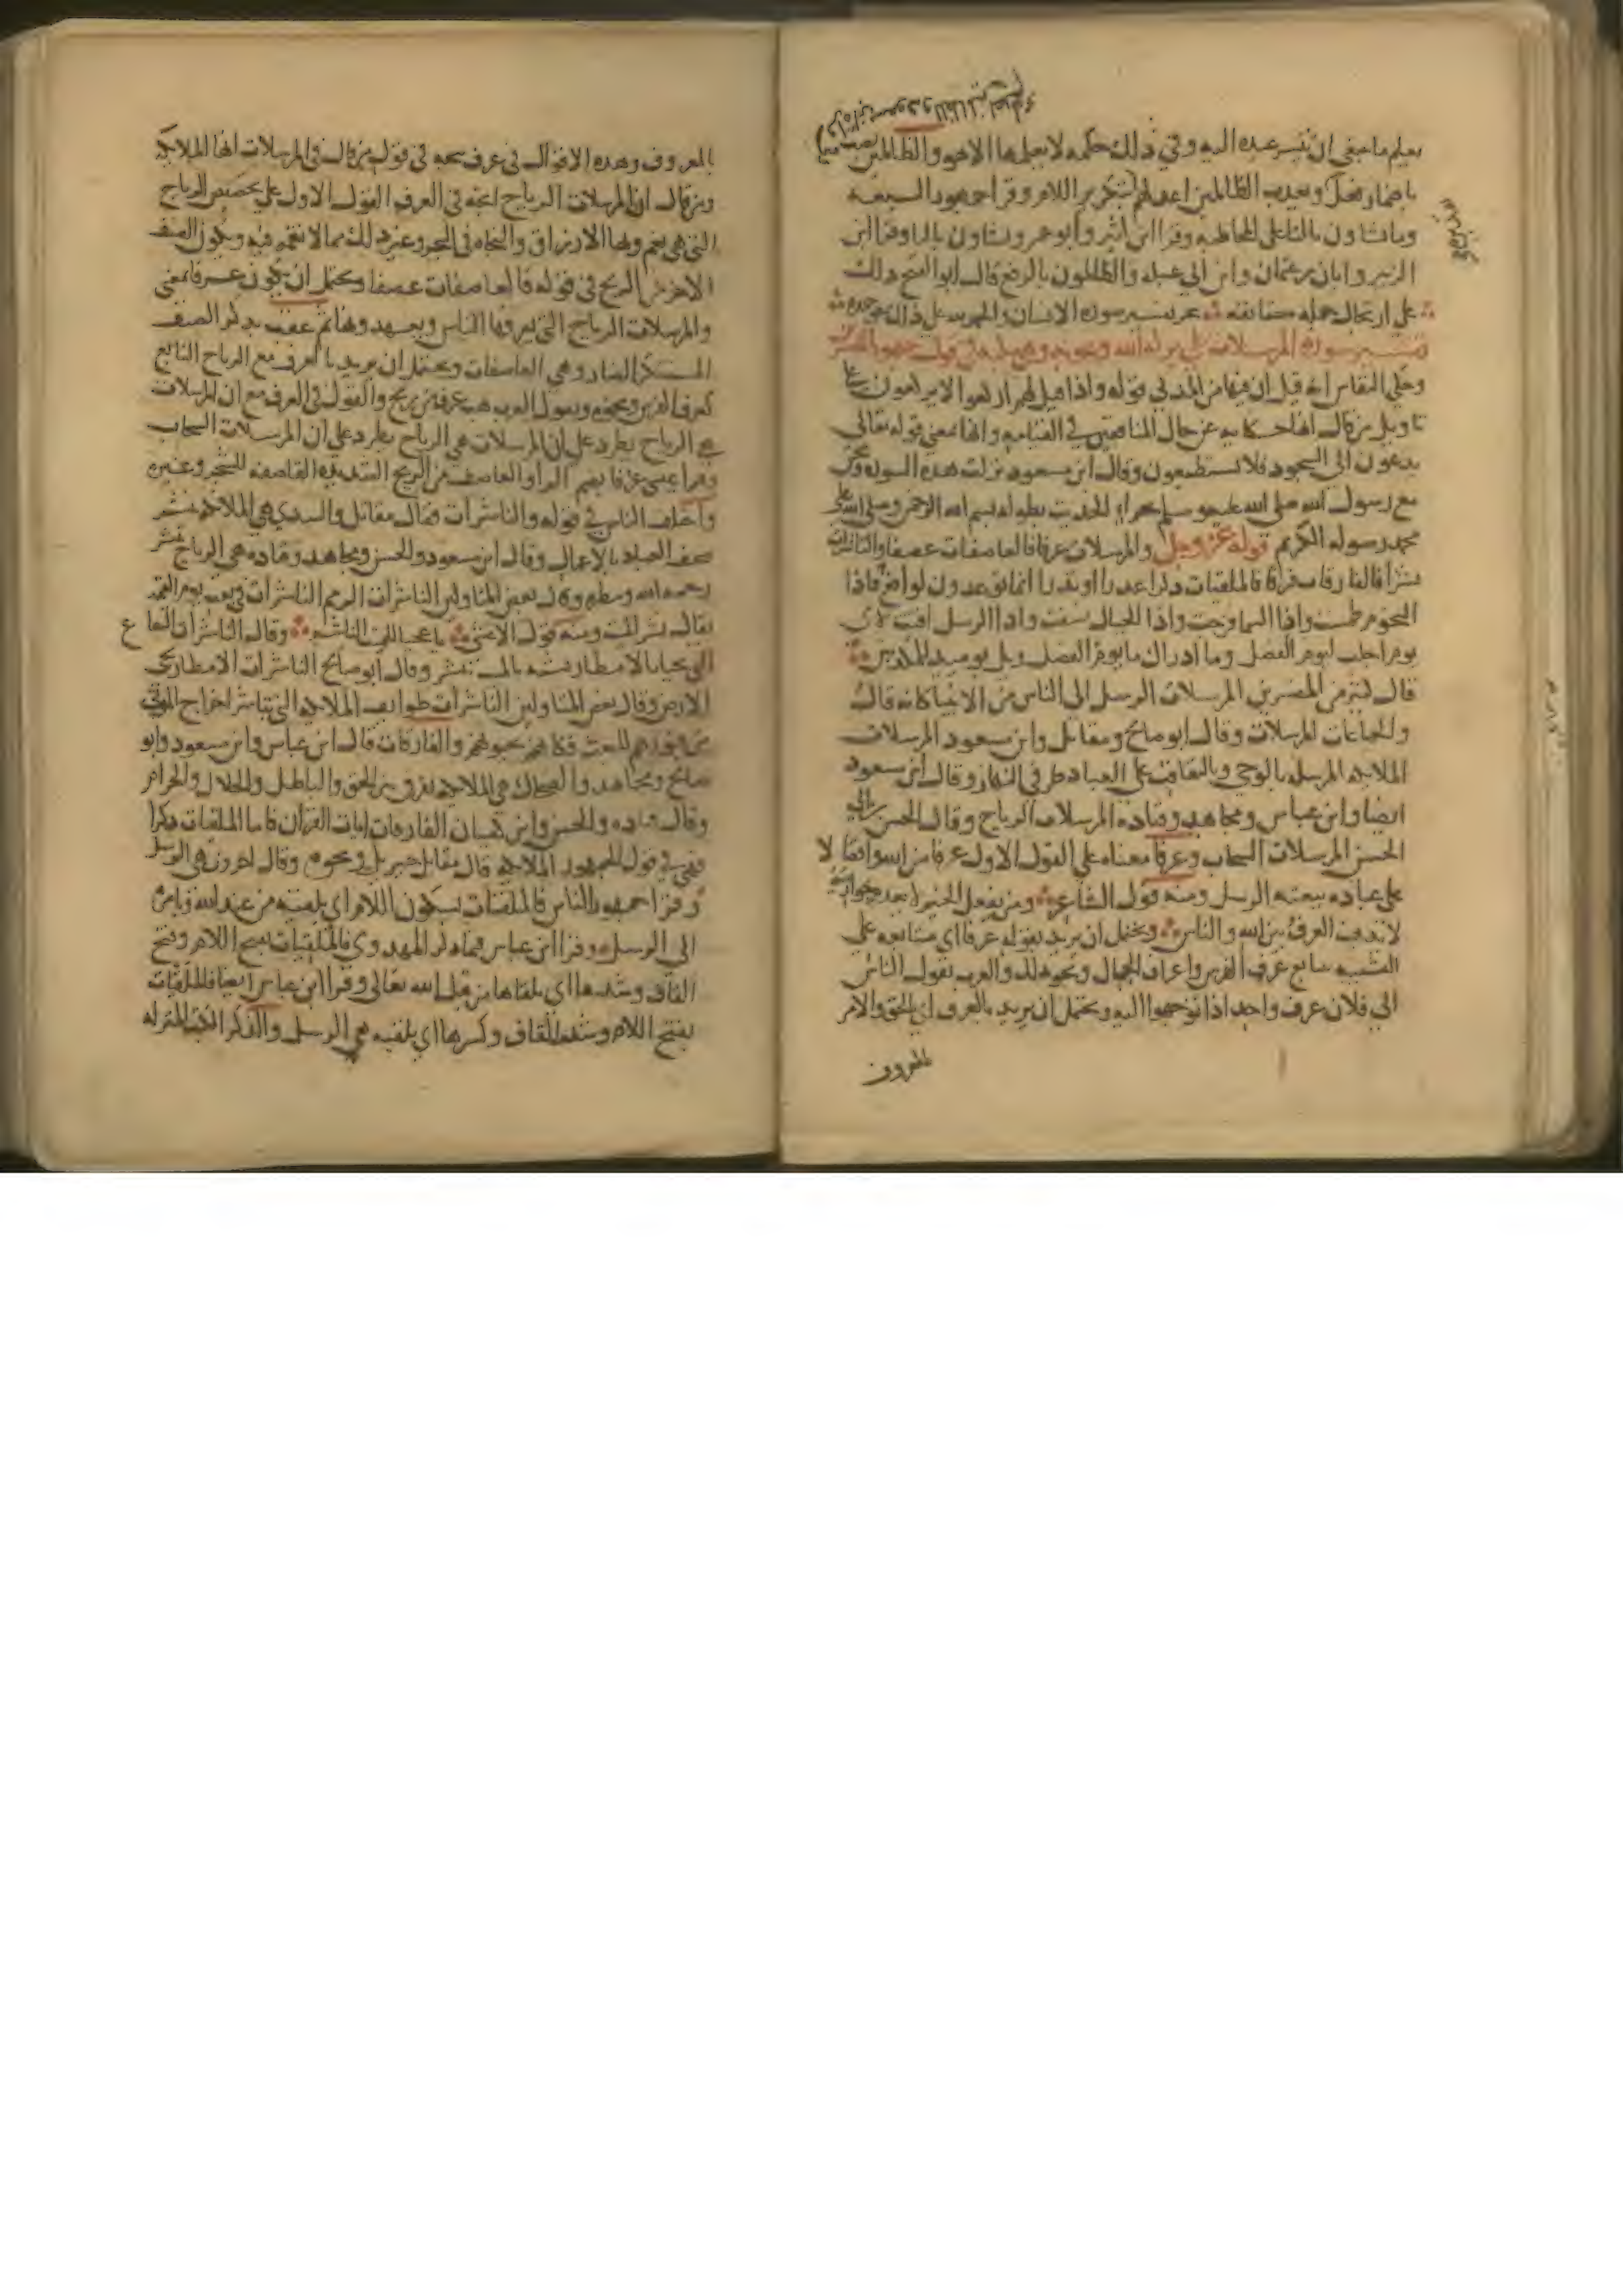 يعلم ما ينبغي ان ييسر عبده اليه وفي ذلك حكمه لا يعلمها الا هو والظالمين
باضمار فعل ويعذب الظالمين اعد لهم وقرا جمهور السبعه
وما تشاون بالتا على المخاطبه وقرا ابن كثير وابو عمرو يشاون باليا وقرا ابن
الزبير وابان بن عثمان وابن ابي عبله والظالمون بالرفع قال ابو الفتح ذلك
على ارتجال جمله مستانفه نجز تفسير سوره الانسان والحمد لله على ذلك
تفسير سوره المرسلات
وحكى النقاش انه قيل ان فيها من المدني قوله واذا قيل لهم اركعوا لا يركعون
تاويل من قال انها حكايه عن حال المنافقين في القيامه وانها بمعنى قوله تعالى
يدعون الى السجود فلا يستطيعون وقال ابن مسعود نزلت هذه السوره ونحن
مع رسول الله صلى الله عليه وسلم بحراء الحديث بطوله بسم الله الرحمن وصلى الله على
محمد رسوله الكريم قوله عز وجل والمرسلات عرفا فالعاصفات عصفا والناشرات
نشرا فالفارقات فرقا فالملقيات ذكرا عذرا او نذرا انما توعدون لواقع فاذا
النجوم طمست واذا السما فرجت واذا الجبال نسفت واذا الرسل اقتت لاي
يوم اجلت ليوم الفصل وما ادراك ما يوم الفصل ويل يوميذ للمكذبين
قال كثير من المفسرين المرسلات الرسل الى الناس من الانبيا كانه قال
والجماعات المرسلات وقال ابو صالح ومقاتل وابن مسعود المرسلات
الملايكه المرسله بالوحي وبالتعاقب على العباد طرفي النهار وقال ابن مسعود
ايضا وابن عباس ومجاهد وقتاده المرسلات الرياح وقال الحسن بن ابي
الحسن المرسلات السحاب وعرفا معناه على القول الاول عرفا من الله وافضالا
على عباده ببعثه الرسل ومنه قول الشاعر من يفعل الخير لا يعدم جوازيه
لا يذهب العرف بين الله والناس ويحتمل ان يريد بقوله عرفا اي متتابعه على
التشبيه بتتابع عرف الفرس واعراف الجبال ونحو ذلك والعرب تقول الناس
الى فلان عرف واحد اذا توجهوا اليه ويحتمل ان يريد بالعرف اي بالحق والامر
بالمعروف
بالمعروف وهذه الاقوال في عرف تتجه في قول من قال في المرسلات انها الملايكه
ومن قال ان المرسلات الرياح اتجه في العرف القول الاول على تخصيص الرياح
التي هي نعم وبها الارزاق والنجاه في البحر وغير ذلك مما لا نقمه فيه ويكون الصنف
الاخر من الريح في قوله فالعاصفات عصفا ويحتمل ان يكون عرفا بمعنى
والمرسلات الرياح التي يعرفها الناس ويعهدونها ثم عقب بذكر الصنف
المستنكر الضار وهي العاصفات ويحتمل ان يريد بالعرف مع الرياح التتابع
كعرف الفرس ونحوه وتقول العرب هب عرف من ريح والقول في العرف مع ان المرسلات
هي الرياح يطرد على ان المرسلات السحاب
وقرا عيسى عرفا بضم الرا والعاصف من الريح الشديده القاصفه للشجر وغيره
واختلف الناس في قوله والناشرات فقال مقاتل والسدي هي الملايكه تنشر
صحف العباد بالاعمال وقال ابن مسعود والحسن ومجاهد وقتاده هي الرياح تنشر
رحمه الله ومطره وقال بعض المتاولين الناشرات الرمم الناشرات في بعث يوم القيمه
يقال نشر الميت ومنه قول الاعشى يا عجبا للميت الناشر وقال الناشرات البقاع
التي تحيا بالامطار شبهت بالميت ينشر وقال ابو صالح الناشرات الامطار تحيي
الارض وقال بعض المتاولين الناشرات طوايف الملايكه التي تباشر اخراج الموتى
من قبورهم للبعث فكانهم يحيونهم والفارقات قال ابن عباس وابن مسعود وابو
صالح ومجاهد والضحاك هي الملايكه تفرق بين الحق والباطل والحلال والحرام
وقال قتاده والحسن وابن كيسان الفارقات ايات القران فاما الملقيات ذكرا
فهي في قول الجمهور الملايكه قال مقاتل جبريل وقال اخرون هي الرسل
وقرا جمهور الناس فالملقيات بسكون اللام اي تلقيه من عند الله
الى الرسل وقرا ابن عباس فيما ذكر المهدوي فالملقيات بفتح اللام وفتح
القاف وشدها اي تلقاها من قبل الله تعالى وقرا ابن عباس ايضا فالملقيات
بفتح اللام وشد القاف وكسرها اي تلقيه هي الرسل والذكر الكتب المنزله